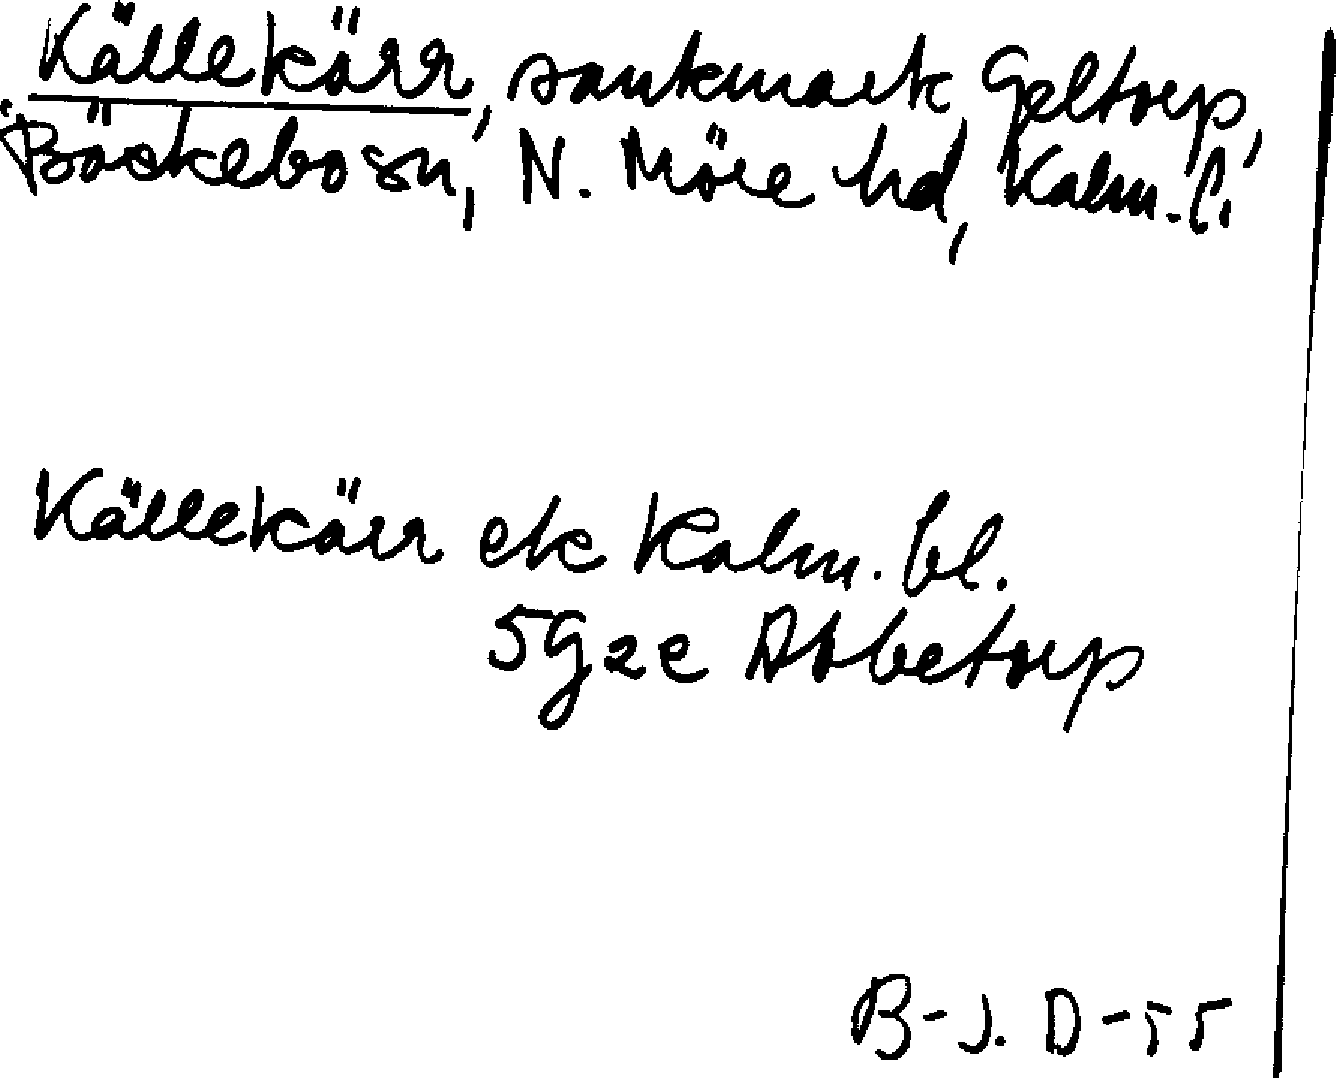 Källekärr, sankmark, Geltorp,
Bäckebo sn, N. Möre hd, Kalm. l.
Källekärr ek Kalm. bl.
5G2e Abbetorp
B-J. D-55